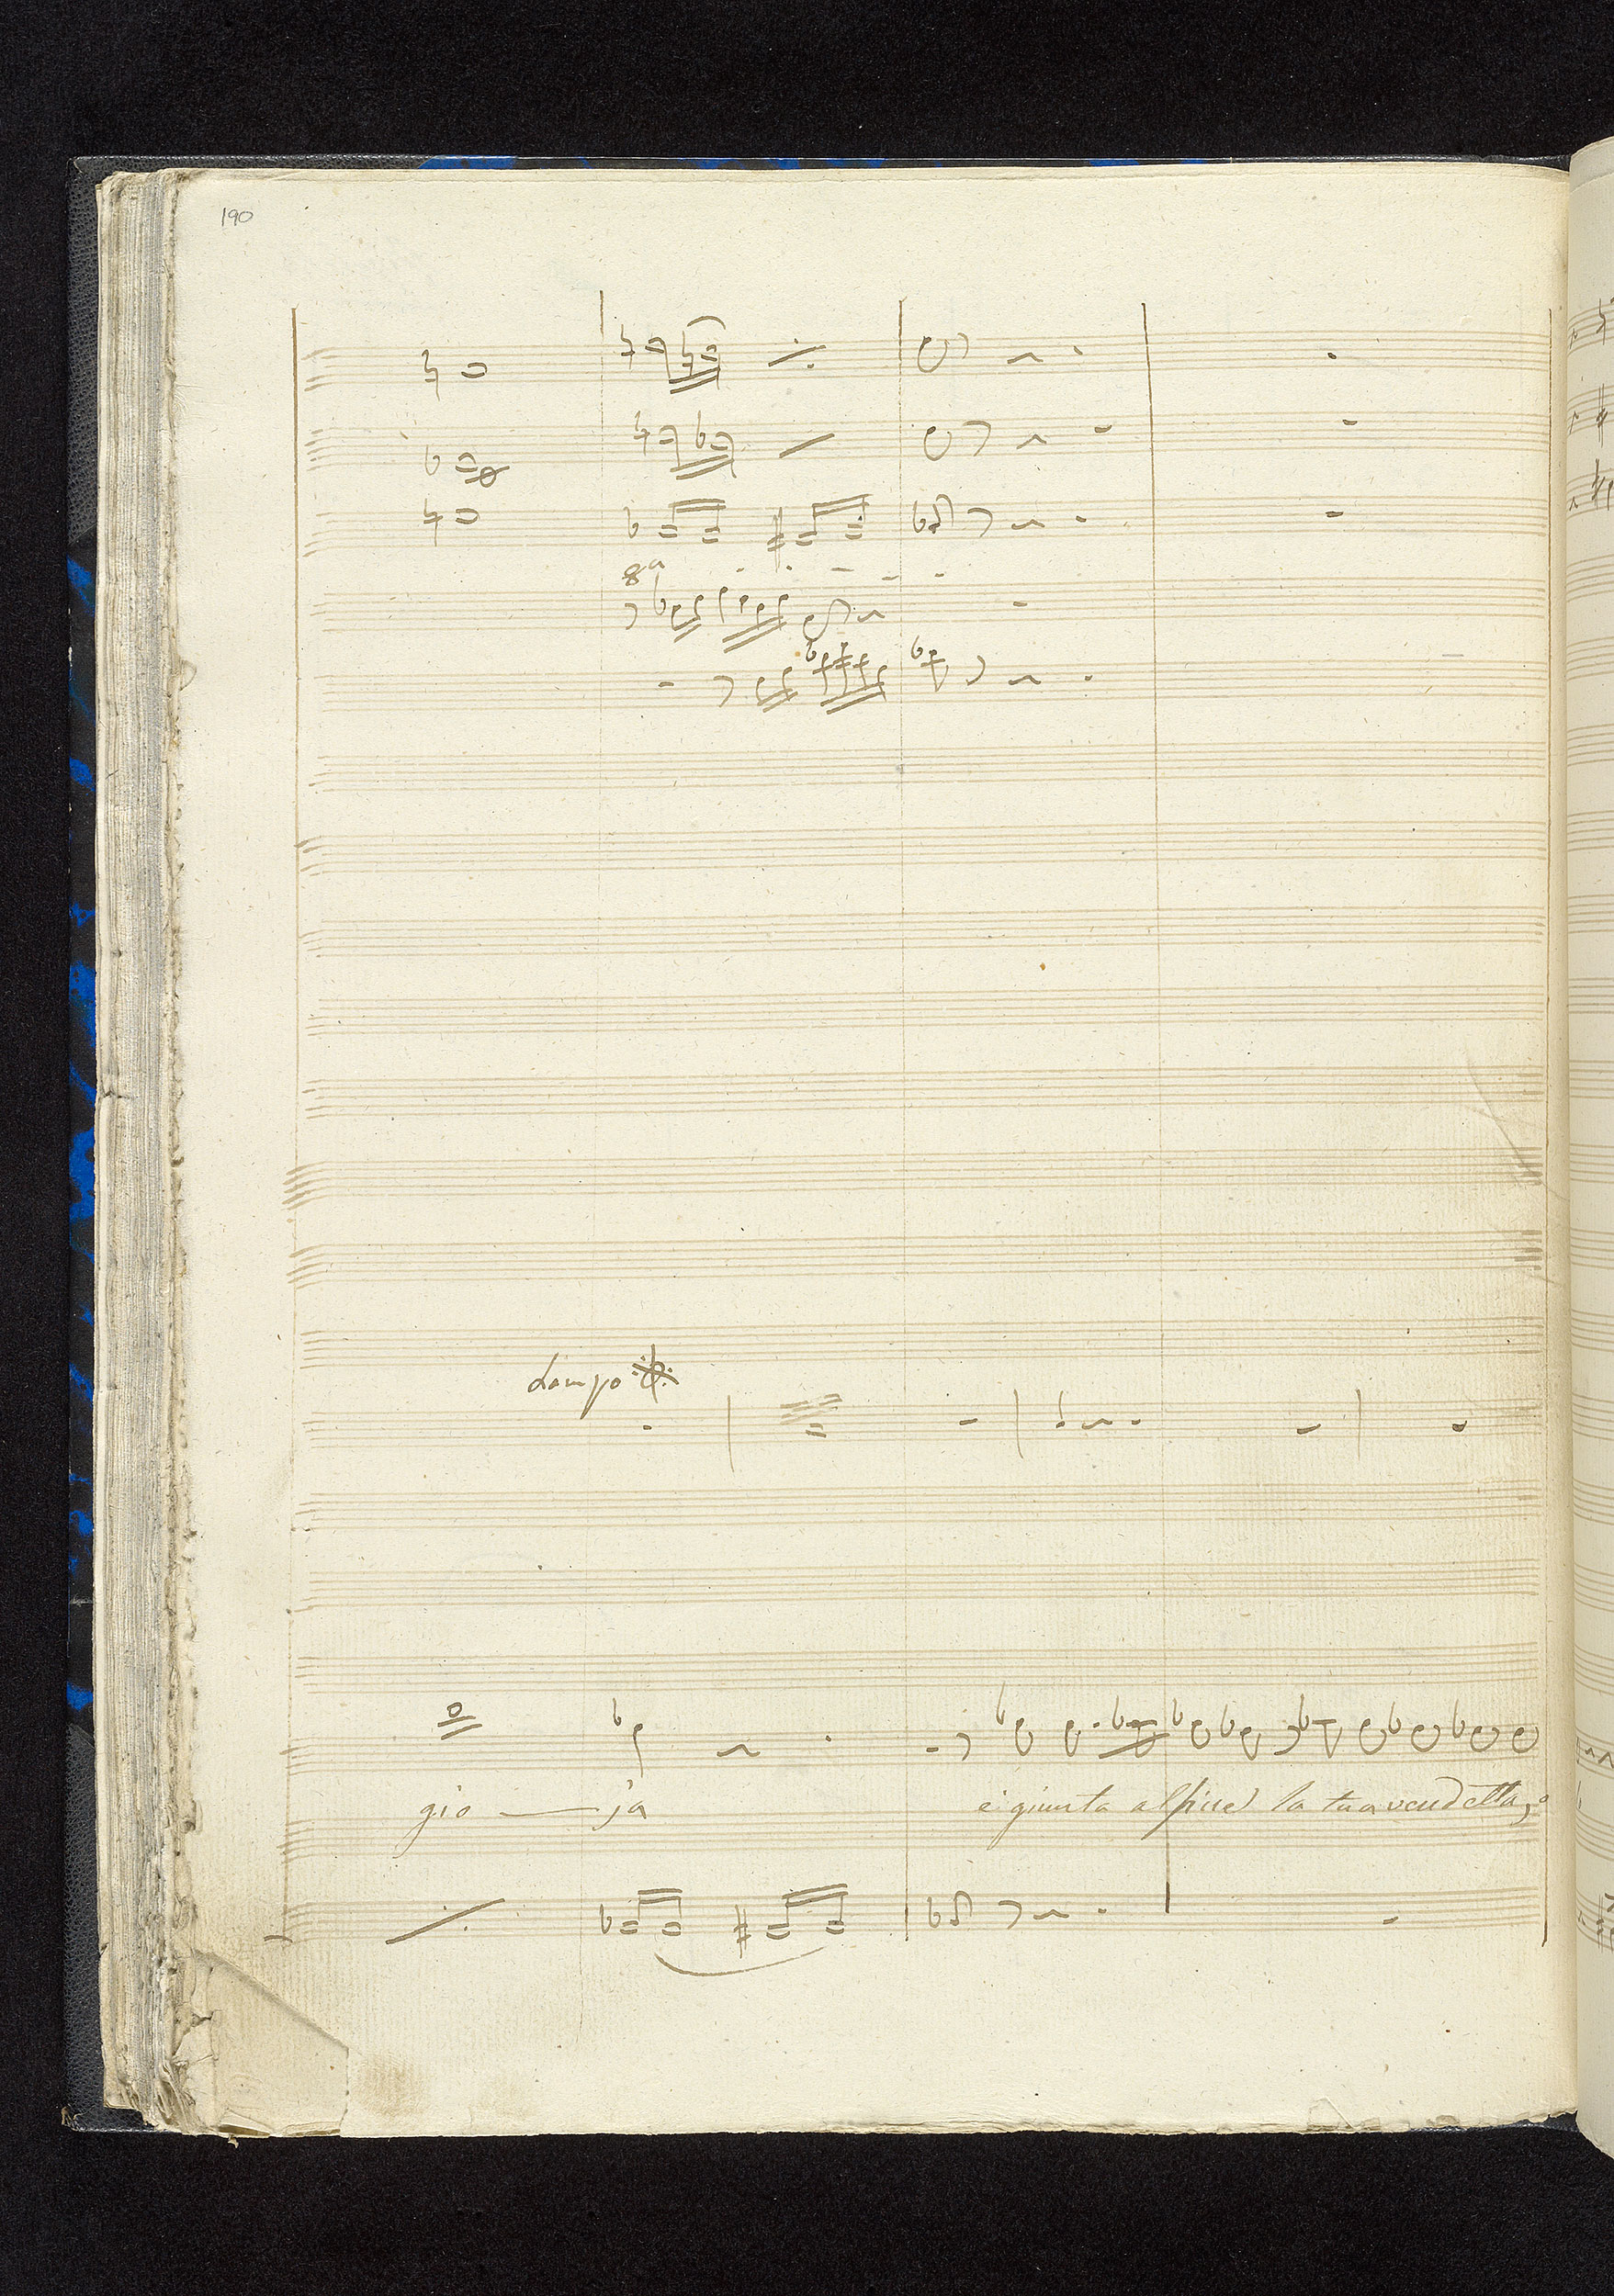 190
8a
Lampo
gio — ja
è giunta alfine la tua vendetta, o